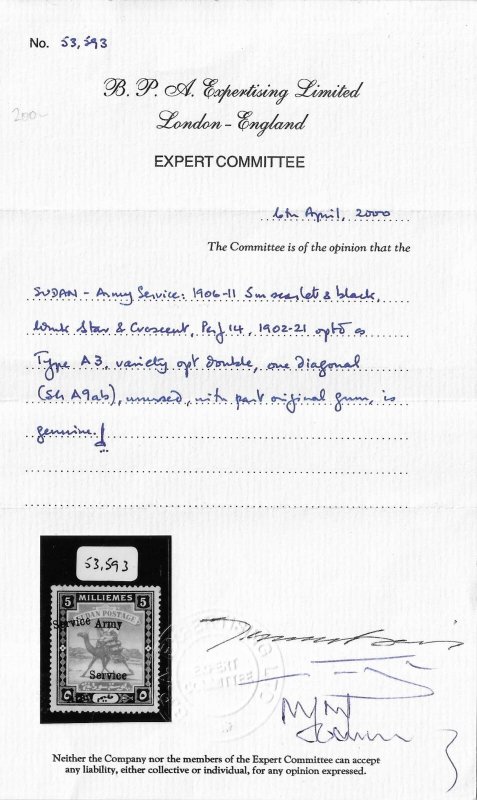 No. 53,593
2000
B. P. A. Expertising Limited
London - England
EXPERT COMMITTEE
6th April, 2000
The Committee is of the opinion that the
SUDAN - Army Service: 1906-11 5m scarlet & black,
wmk Star & Crescent, Perf 14, 1902-21 optd as
Type A3, variety opt double, one diagonal
(SG A9ab), unused, with part original gum, is
genuine.
53,593
5 MILLIEMES 5
SUDAN POSTAGE
Service Army
Service
Neither the Company nor the members of the Expert Committee can accept
any liability, either collective or individual, for any opinion expressed.